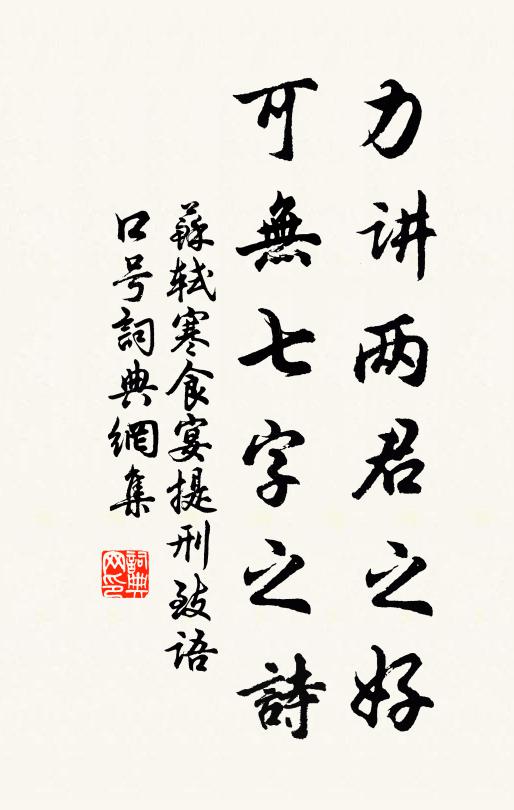 力讲两君之好
可無七字之詩
蘇轼寒食宴提刑致语
口号詞典網集
詞典
网印